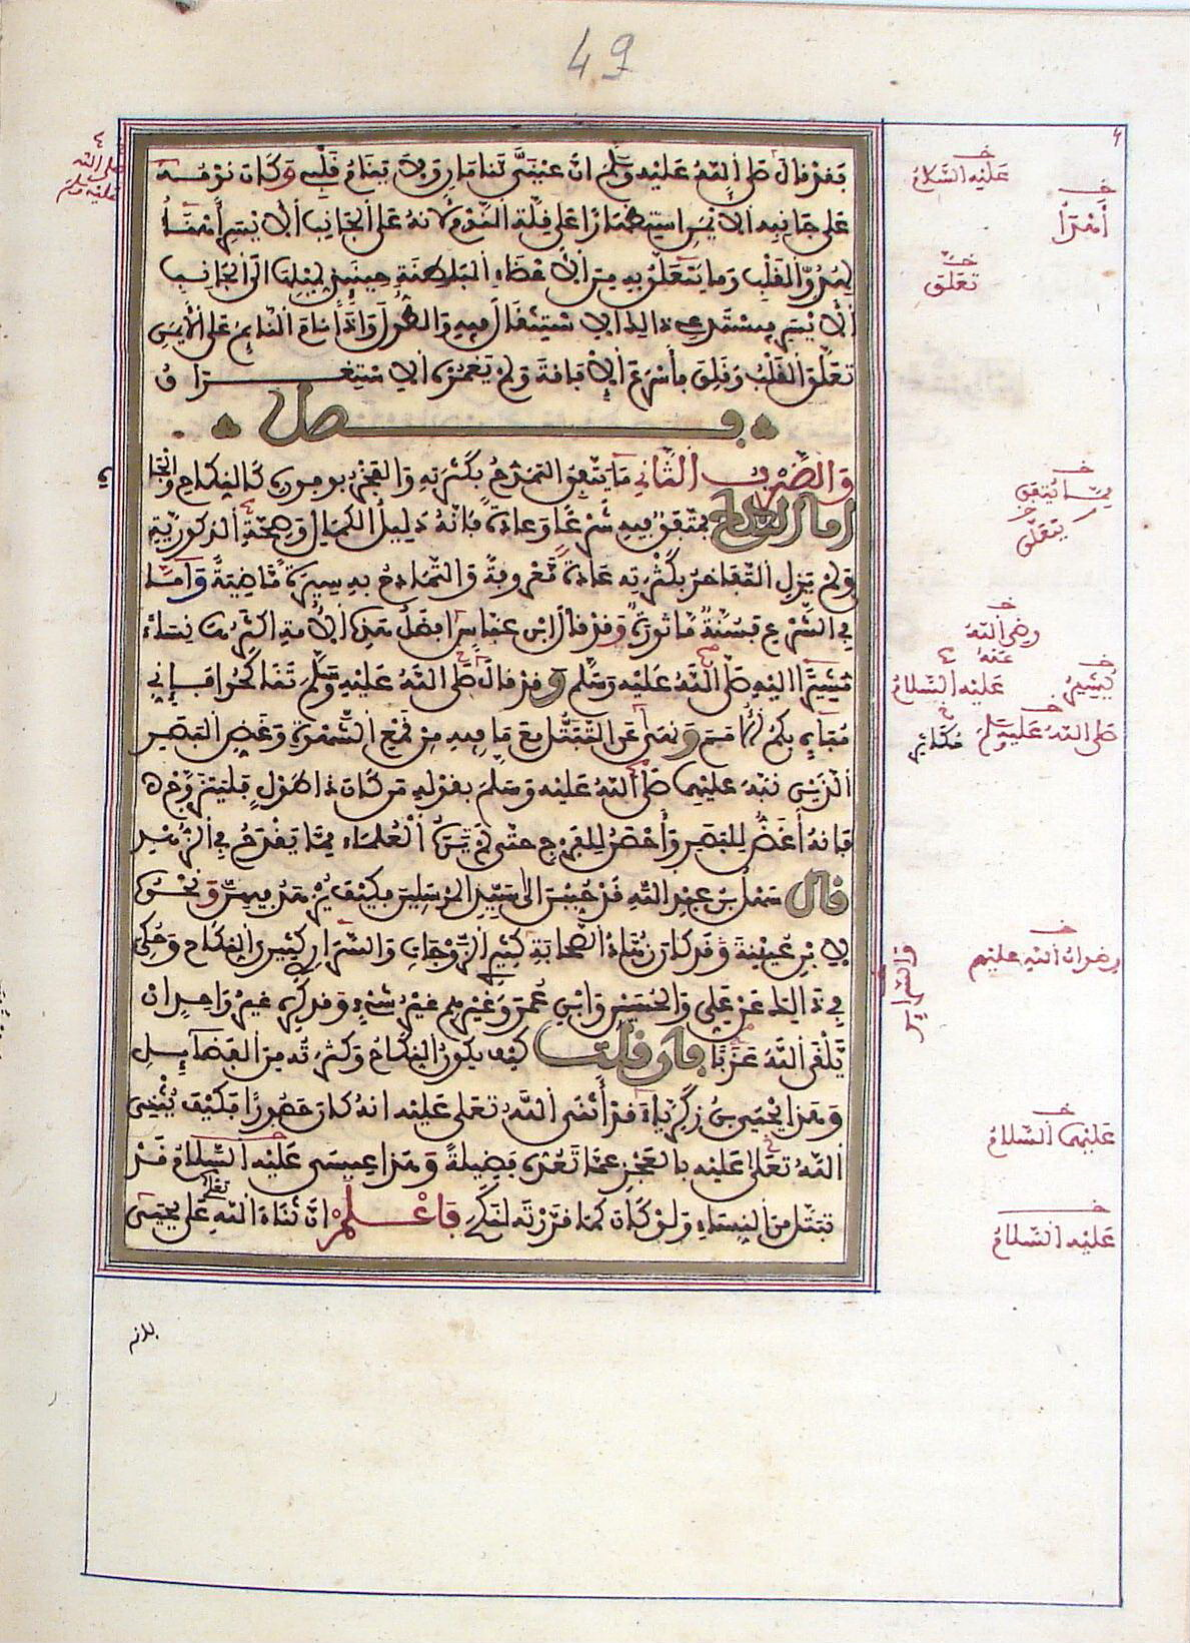 49
فقد قال صلى الله عليه وسلم ان عينيَّ تنامان ولا ينام قلبي وكان نومه
على جانبه الايمن استظهارا على قلة النوم لانه على الجانب الايسر أهنأ
لهدوّ القلب وما يتعلق به من الاعضاء الباطنة حينئذ لميلها الى الجانب
الايسر فيستدعي ذالك الاستثقال فيه والطول واذا نام النائم على الأيمن
تعلّق القلب وقلق فأسرع الافاقة ولم يغمره الاستغراق
فصل
والضرب الثاني ما يتفق التمدح بكثرته والفخر بوفوره كالنكاح والجا
اما النكاح فمتفق فيه شرعًا وعادة فإنه دليل الكمال وصحة الذكورية
ولم يزل التفاخر بكثرته عادة معروفة والتمادح به سيرة ماضية واما
في الشرع فسنة ماثورة وقد قال ابن عباس افضل هذه الامة اكثرها نساء
مشيرًا اليه صلى الله عليه وسلم وقد قال صلى الله عليه وسلم تناكحوا فإني
مباه بكم الأمم ونهى عن التبتل مع ما فيه من قمع الشهوة وغض البصر
الذين نبه عليهما صلى الله عليه وسلم بقوله من كان ذا طول فليتزوج
فانه أغض للبصر وأحصن للفرج حتى لم يره العلماء مما يقدح في الزهد
قال سهل بن عبد الله قد حببن الى سيد المرسلين فكيف يزهد فيهن ونحوه
لابن عيينة وقد كان زهاد الصحابة كثيري الزوجات والسراري كثيري النكاح وحكي
في ذالك عن علي والحسن وابن عمر وغيرهم غير شيء وقد كره غير واحد ان
يلقى الله عزبا فان قلت كيف يكون النكاح وكثرته من الفضائل
وهذا يحيى بن زكرياء قد أثنى الله تعلى عليه انه كان حصورًا فكيف يثني
الله تعلى عليه بالعجز عما تعده فضيلة وهذا عيسى عليه السلام قد
تبتل من النساء ولو كان كما قررته لنكح فاعلم ان ثناء الله تعلى على يحيى
عليه السلام
أهدأ
تعلق
مما يتفق
يتعلق
رضي الله
عنه
ليشير
عليه السلام
صلى الله عليه وسلم
رضوان الله عليهم
والسراري
عليهما السلام
عليه السلام
صلى الله
عليه وسلم
بانه